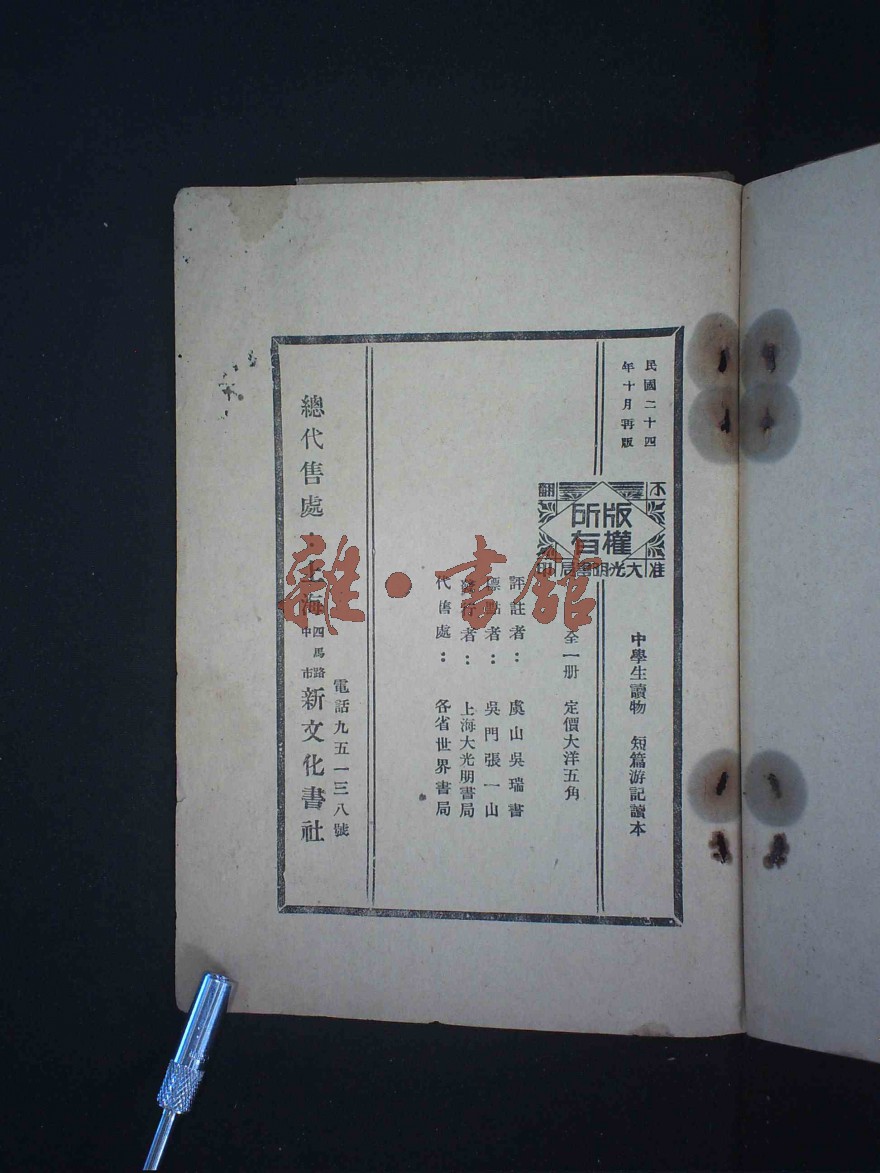 民國二十四
年十月再版
不准翻印
版權所有
大光明書局
中學生讀物　短篇游記讀本
全一册　定價大洋五角
評註者：虞山吳瑞書
標點者：吳門張一山
發行者：上海大光明書局
代售處：各省世界書局
電話九五一三八號
總代售處：上海四馬路中市新文化書社
雜·書館